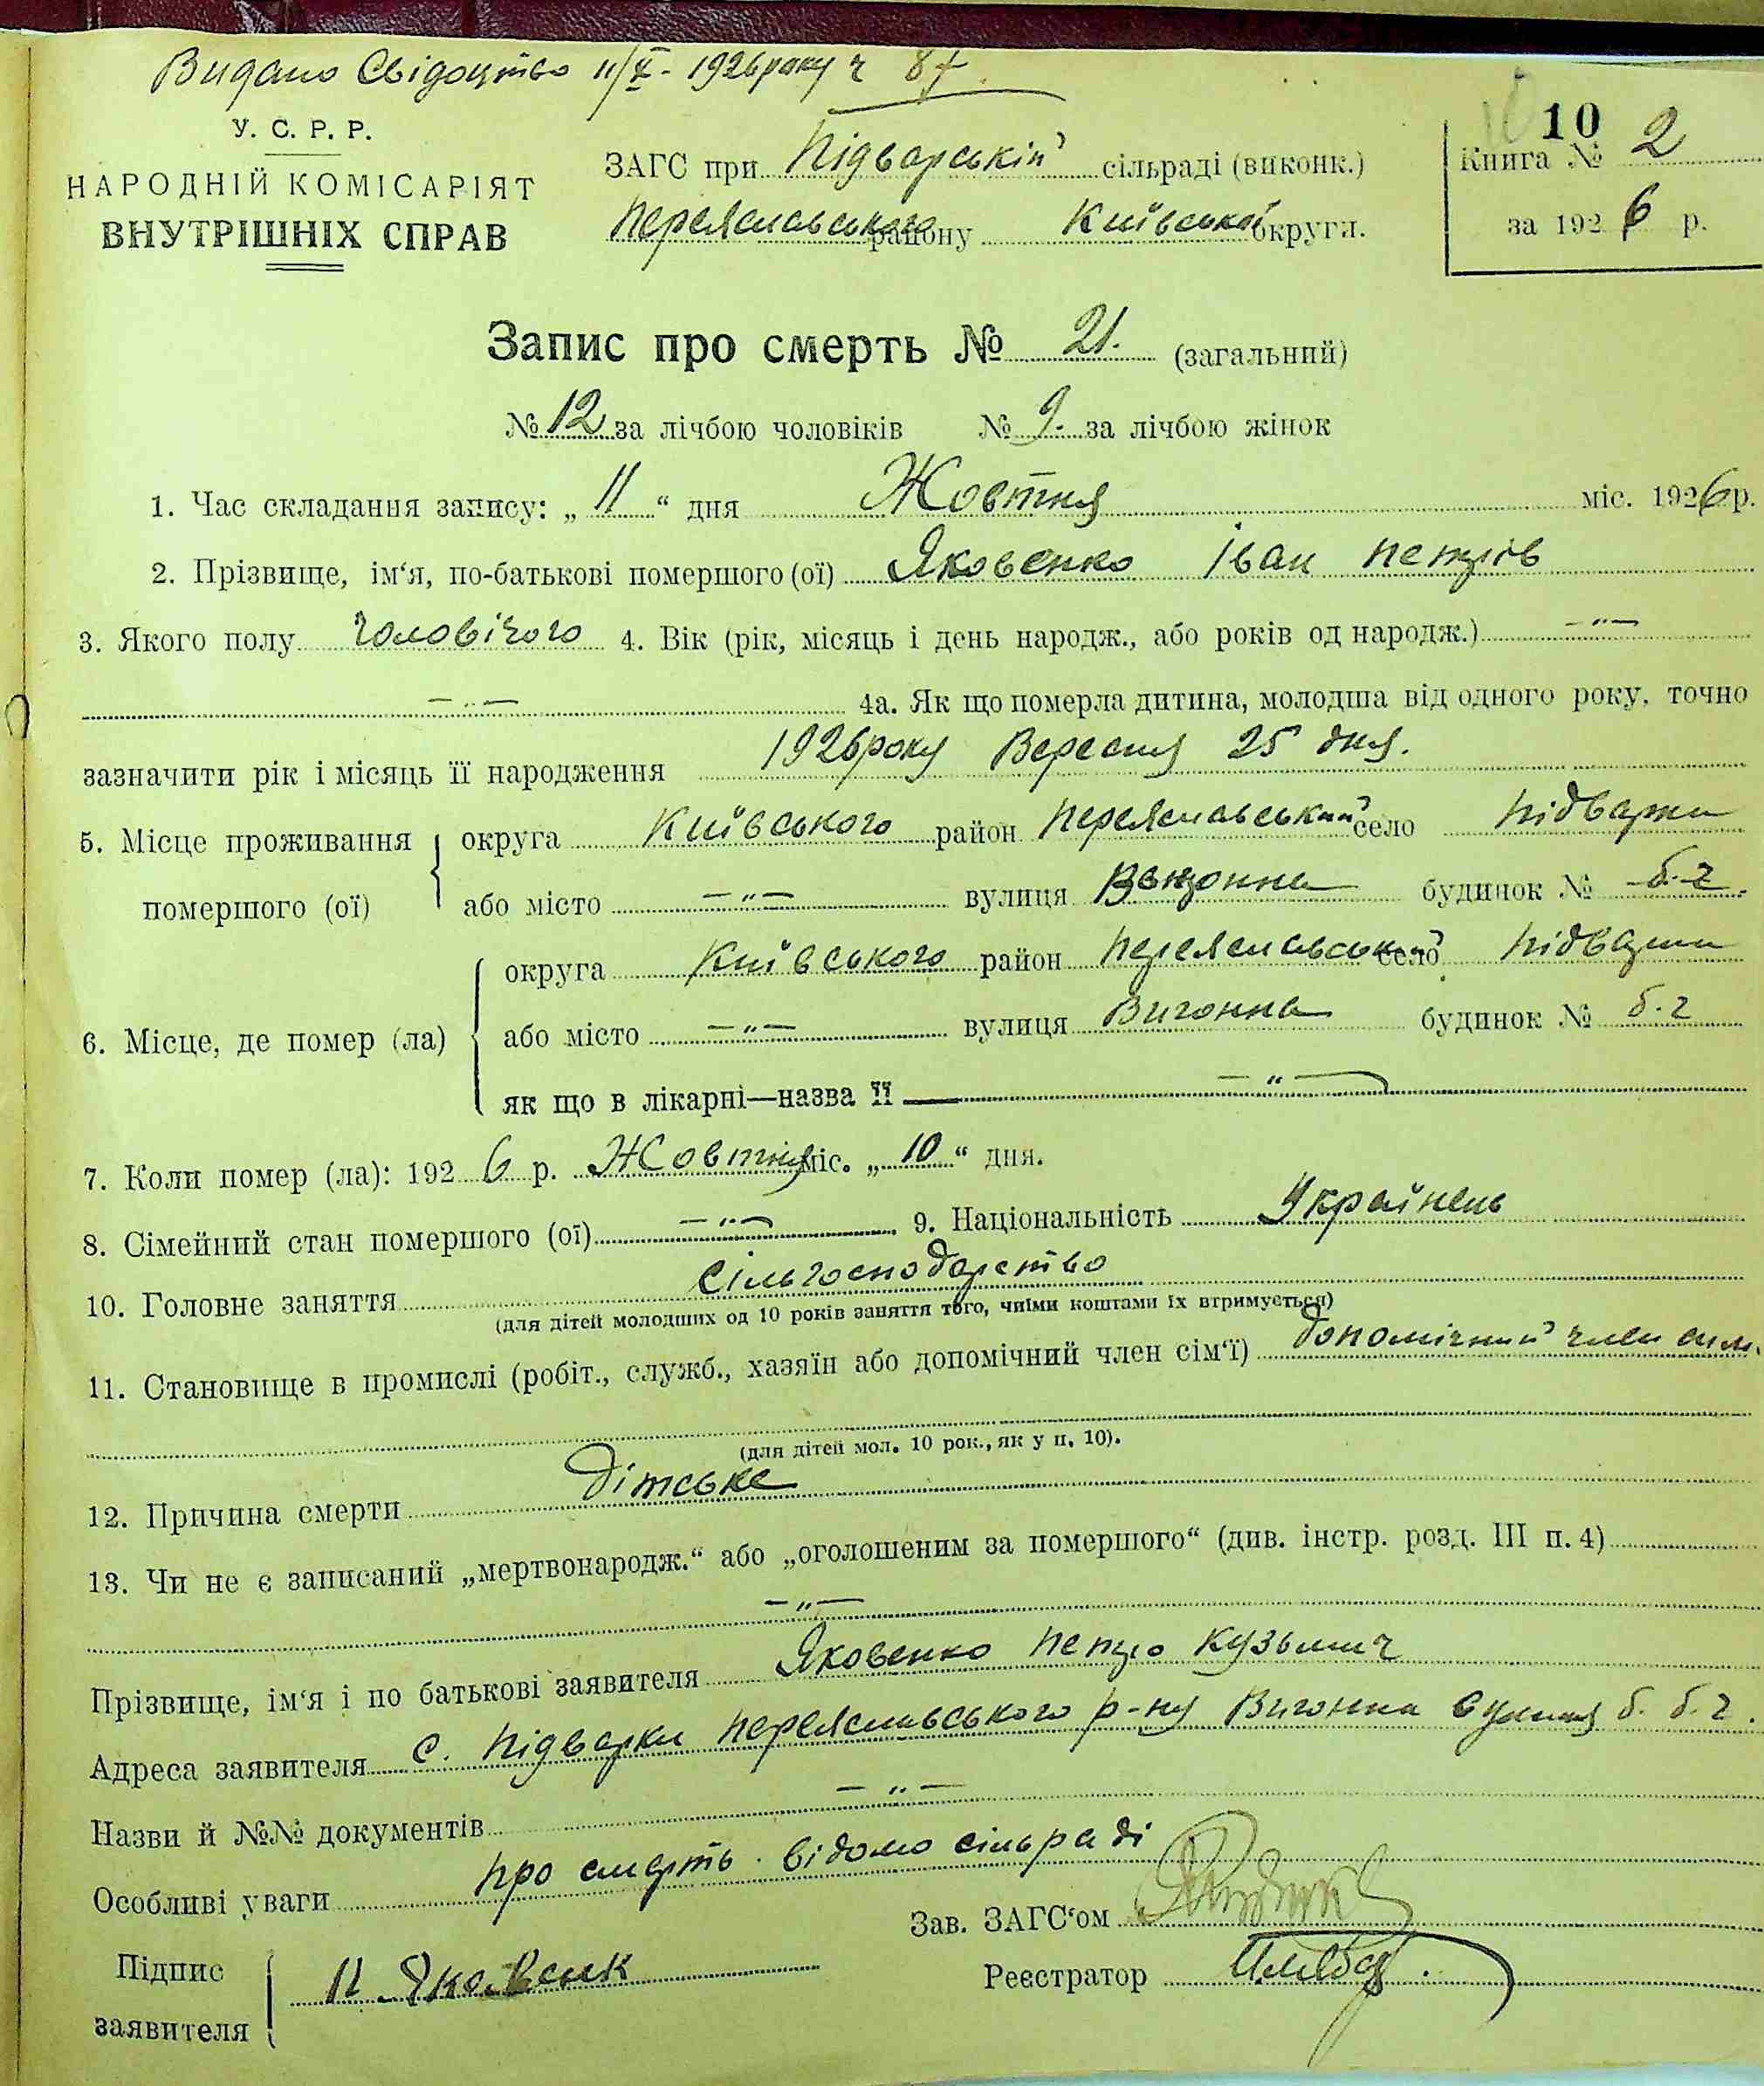 Видано Свідоцтво 11/X - 1926 року ч 87
У. С. Р. Р.
НАРОДНІЙ КОМІСАРІЯТ
ВНУТРІШНІХ СПРАВ
ЗАГС при Підварській сільраді (виконк.)
Переяславського району Київської округи.
10
Книга № 2
за 1926 р.
Запис про смерть № 21. (загальний)
№ 12 за лічбою чоловіків № 9. за лічбою жінок
1. Час складання запису: „ 11 “ дня Жовтня міс. 1926 р.
2. Прізвище, ім‘я, по-батькові помершого (ої) Яковенко Іван Петрів
3. Якого полу чоловічого 4. Вік (рік, місяць і день народж., або років од народж.) — " —
— " — 4а. Як що померла дитина, молодша від одного року, точно
зазначити рік і місяць її народження 1926 року Вересня 25 дня.
5. Місце проживання помершого (ої) округа Київського район Переяславський село Підварки
або місто — " — вулиця Вигонна будинок № б-ч
6. Місце, де помер (ла) округа Київського район Переяславський село Підварки
або місто — " — вулиця Вигонна будинок № б-ч
як що в лікарні—назва її — " —
7. Коли помер (ла): 1926 р. Жовтня міс. „ 10 “ дня.
8. Сімейний стан помершого (ої) — " — 9. Національність Українець
10. Головне заняття сільгосподарство
(для дітей молодших од 10 років заняття того, чиїми коштами їх втримується)
11. Становище в промислі (робіт., служб., хазяїн або допомічний член сім‘ї) допомічний член сим.
(для дітей мол. 10 рок., як у п. 10).
12. Причина смерти Дітське
13. Чи не є записаний „мертвонародж.“ або „оголошеним за помершого“ (див. інстр. розд. III п. 4)
— " —
Прізвище, ім‘я і по батькові заявителя Яковенко Петро Кузьмич
Адреса заявителя с. Підварки Переяславського р-ну Вигонна вулиця б. б.ч.
Назви й №№ документів — " —
Особливі уваги про смерть відомо сільраді
Зав. ЗАГС‘ом
Підпис заявителя П Яковенк
Реєстратор